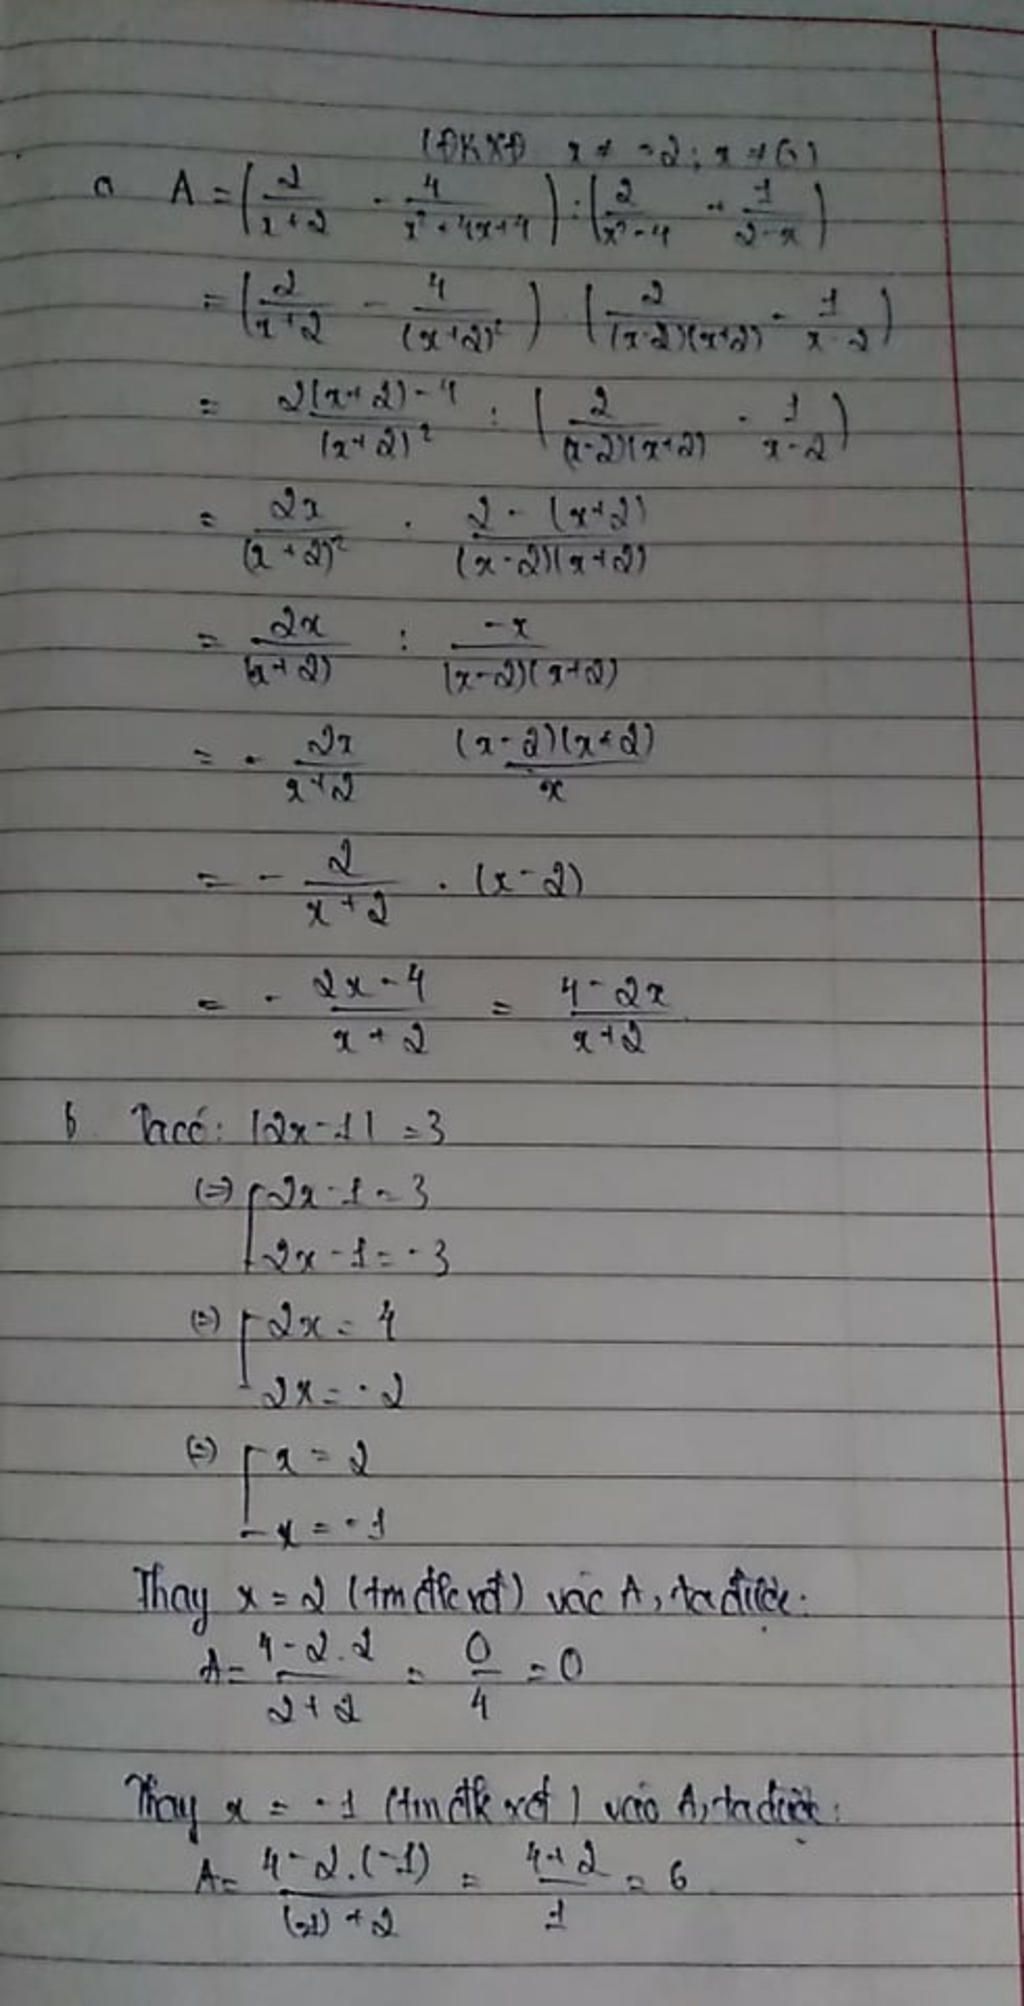 (ĐKXĐ x ≠ -2; x ≠ 0)
a A = (2/(x+2) - 4/(x²+4x+4)) : (2/(x²-4) + 1/(2-x))
= (2/(x+2) - 4/(x+2)²) : (2/((x-2)(x+2)) - 1/(x-2))
= (2(x+2)-4)/(x+2)² : (2/((x-2)(x+2)) - 1/(x-2))
= 2x/(x+2)² : (2-(x+2))/((x-2)(x+2))
= 2x/(x+2) : -x/((x-2)(x+2))
= - 2x/(x+2) (x-2)(x+2)/x
= - 2/(x+2) . (x-2)
= - (2x-4)/(x+2) = (4-2x)/(x+2)
b Ta có: |2x-1| = 3
(=) [2x-1 = 3
2x-1 = -3
(=) [2x = 4
2x = -2
(=) [x = 2
x = -1
Thay x = 2 (tm đkxđ) vào A, ta được:
A = (4-2.2)/(2+2) = 0/4 = 0
Thay x = -1 (tm đkxđ) vào A, ta được:
A = (4-2.(-1))/((-1)+2) = (4+2)/1 = 6